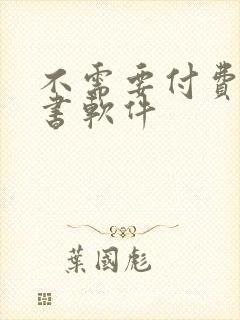 不需要付費
書軟件
葉國彪